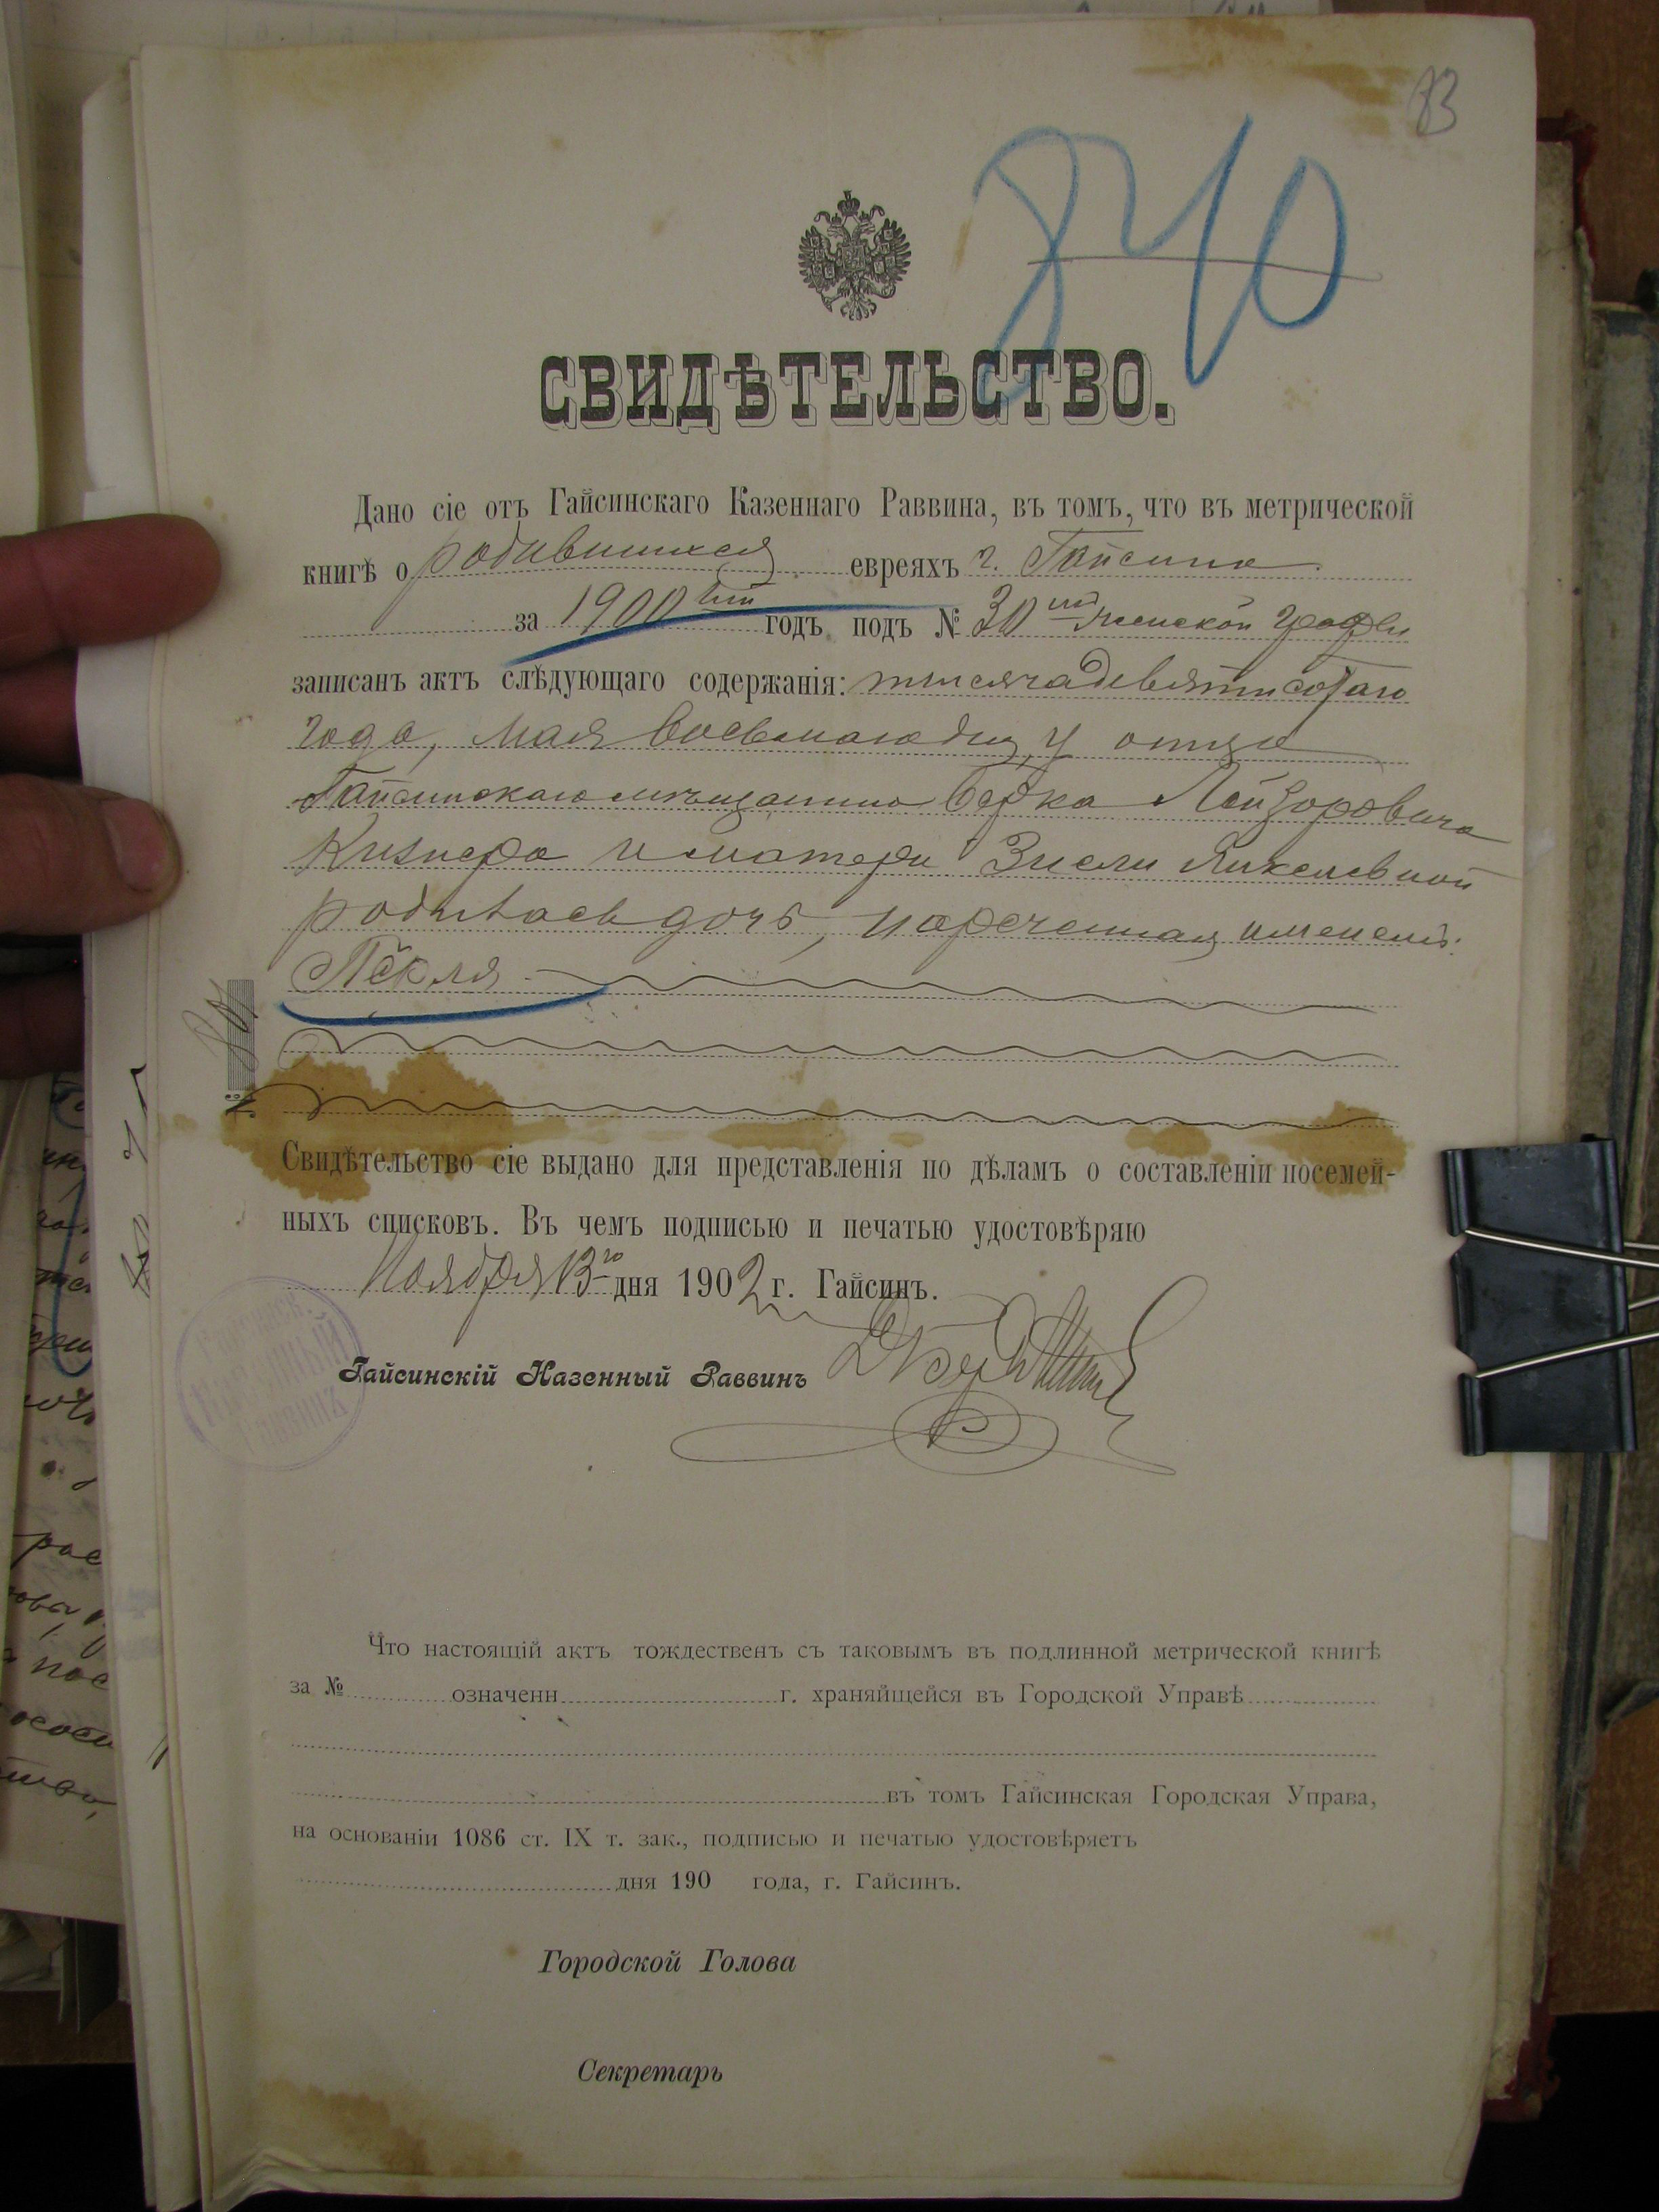 83
840
СВИДѢТЕЛЬСТВО.
Дано сіе отъ Гайсинскаго Казеннаго Раввина, въ томъ, что въ метрической
книгѣ о родившихся евреяхъ г. Гайсина
за 1900 годъ подъ № 30 женской графы
записанъ актъ слѣдующаго содержанія: тысяча девятисотаго
года, мая восьмого дня, у отца
Гайсинскаго мѣщанина Берка Лейзоровича
Кизнера и матери Зисли Янкелевной
родилась дочь, нареченная именемъ:
Пёкля
№ 840
Свидѣтельство сіе выдано для представленія по дѣламъ о составленіи посемей-
ныхъ списковъ. Въ чемъ подписью и печатью удостовѣряю
Ноября 13го дня 1902 г. Гайсинъ.
Гайсинскій Казенный Раввинъ
Что настоящій актъ тождественъ съ таковымъ въ подлинной метрической книгѣ
за № означенн г. храняйщейся въ Городской Управѣ
въ томъ Гайсинская Городская Управа,
на основаніи 1086 ст. IX т. зак., подписью и печатью удостовѣряетъ
дня 190 года, г. Гайсинъ.
Городской Голова
Секретарь